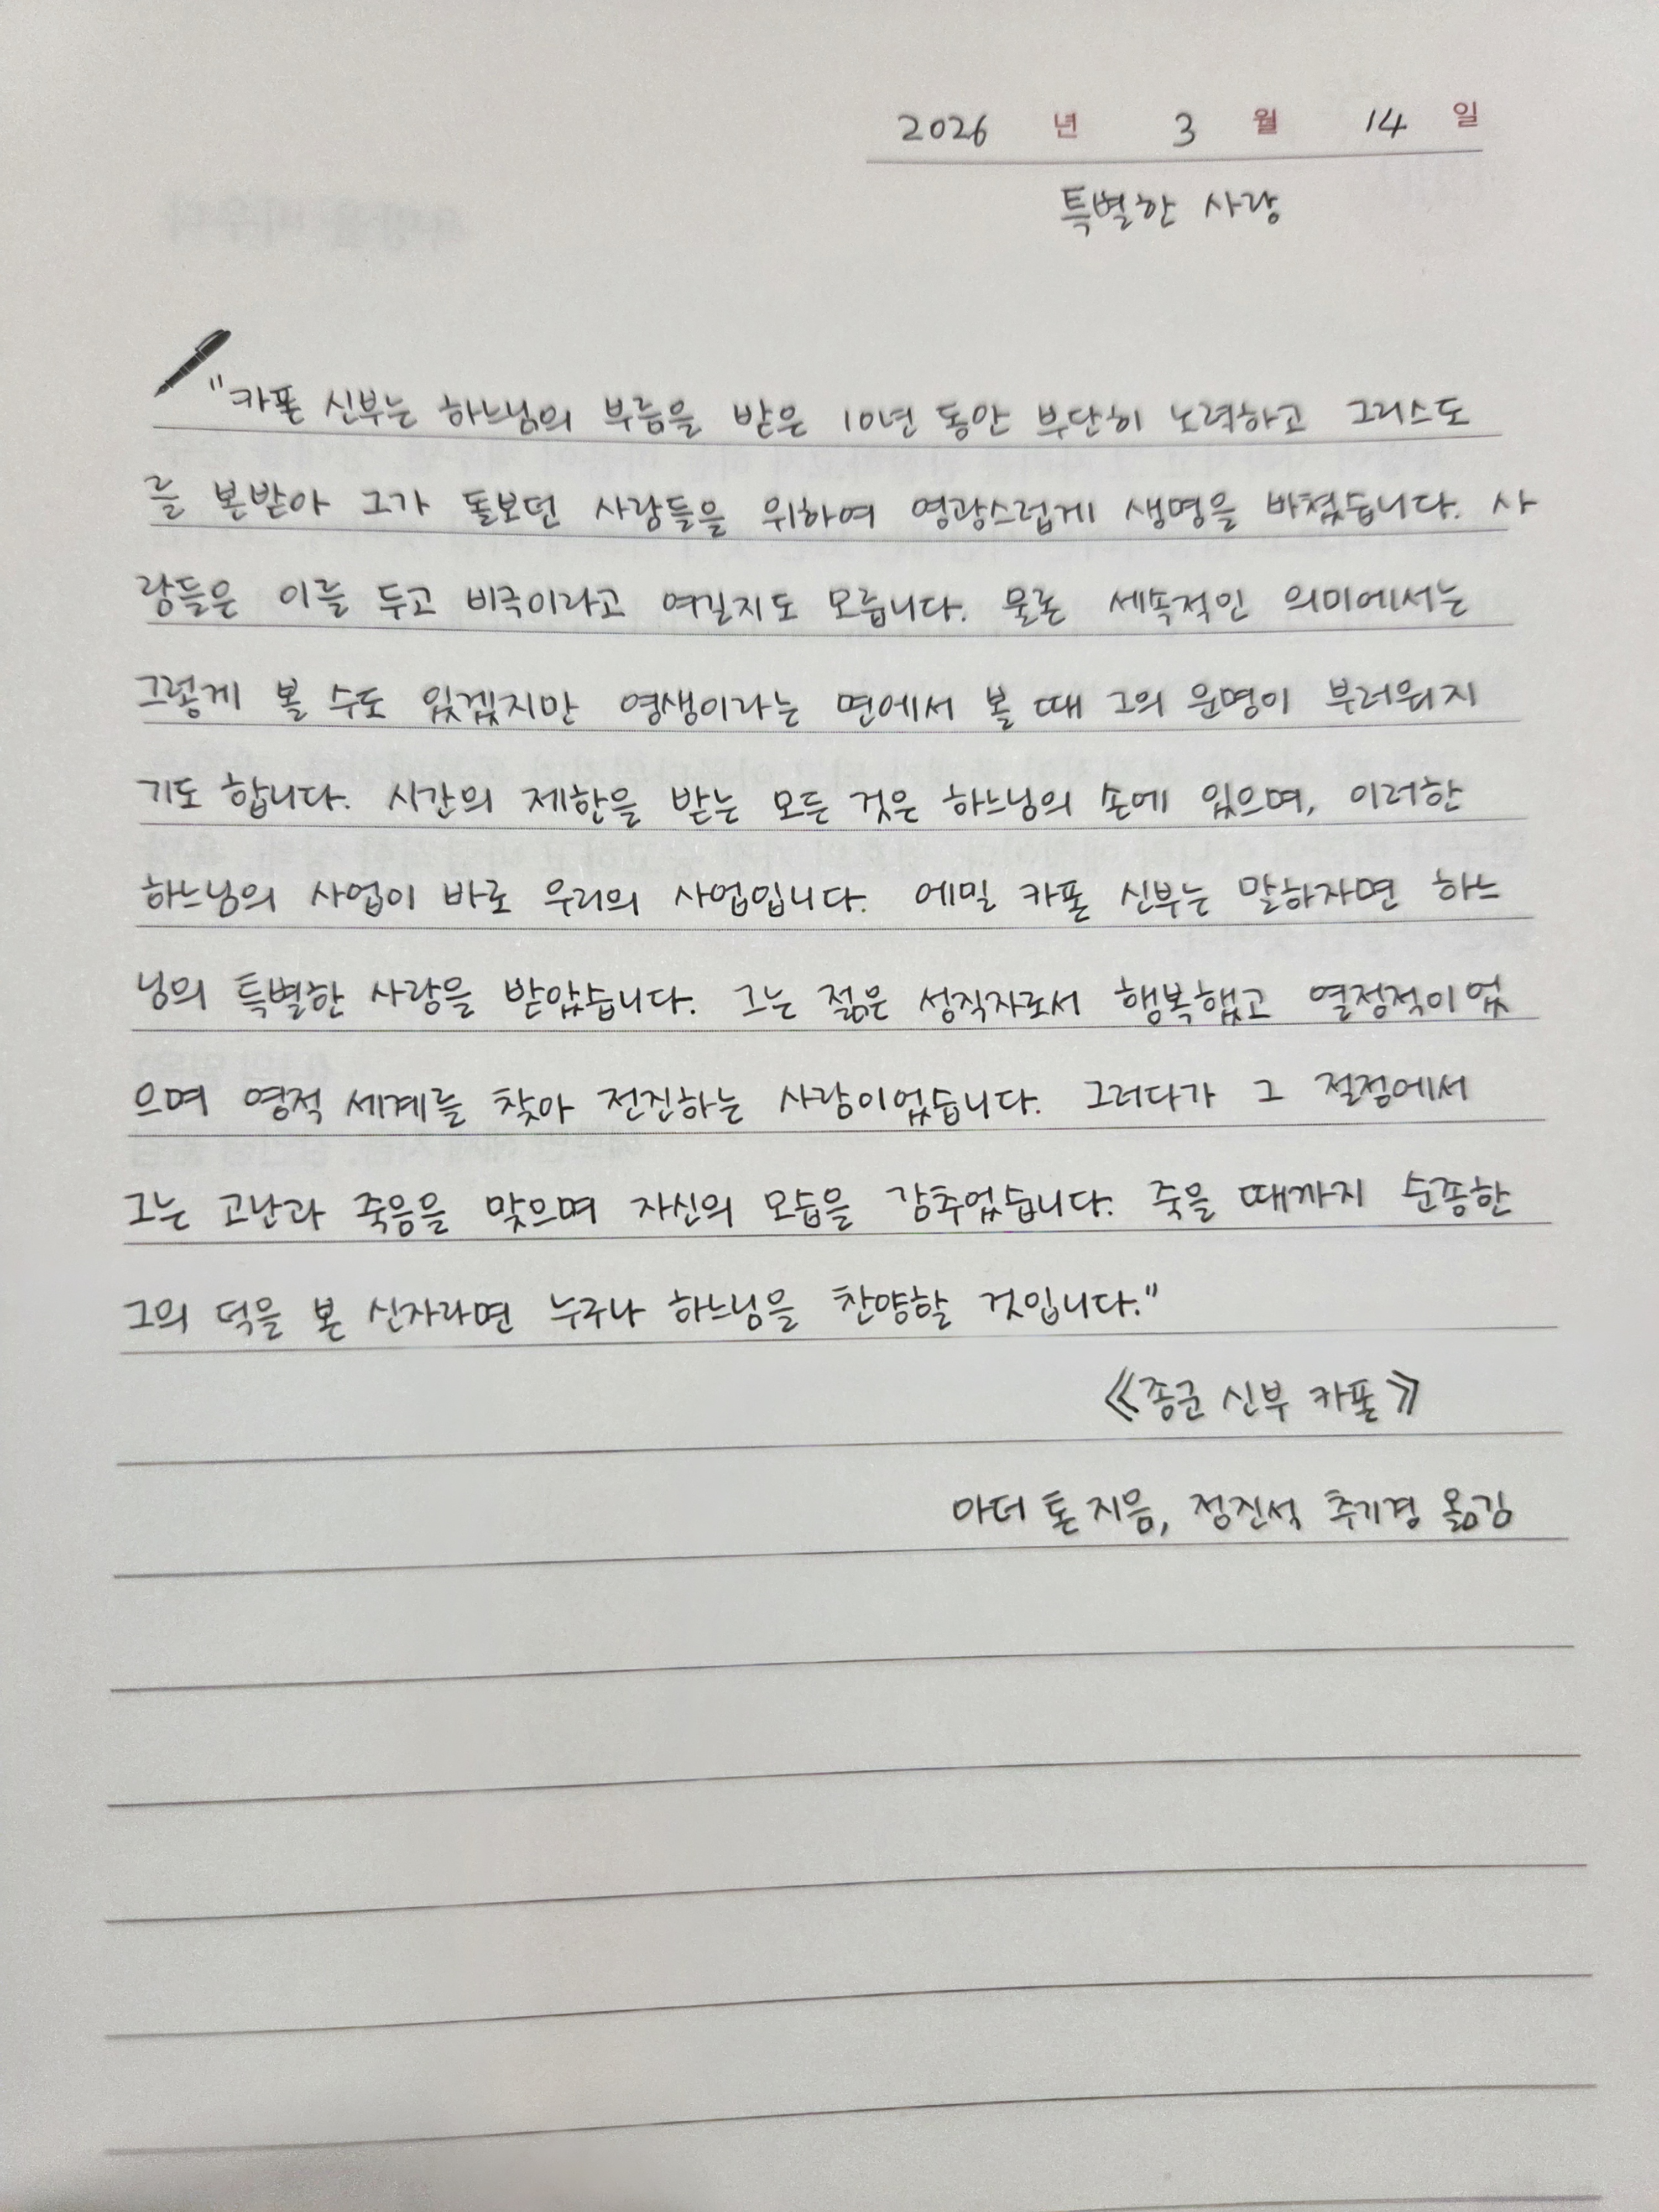 2026 년 3 월 14 일
특별한 사랑
"카폰 신부는 하느님의 부름을 받은 10년 동안 부단히 노력하고 그리스도
를 본받아 그가 돌보던 사람들을 위하여 영광스럽게 생명을 바쳤습니다. 사
람들은 이를 두고 비극이라고 여길지도 모릅니다. 물론 세속적인 의미에서는
그렇게 볼 수도 있겠지만 영생이라는 면에서 볼 때 그의 운명이 부러워지
기도 합니다. 시간의 제한을 받는 모든 것은 하느님의 손에 있으며, 이러한
하느님의 사업이 바로 우리의 사업입니다. 에밀 카폰 신부는 말하자면 하느
님의 특별한 사랑을 받았습니다. 그는 젊은 성직자로서 행복했고 열정적이었
으며 영적 세계를 찾아 전진하는 사람이었습니다. 그러다가 그 절정에서
그는 고난과 죽음을 맞으며 자신의 모습을 감추었습니다. 죽을 때까지 순종한
그의 덕을 본 신자라면 누구나 하느님을 찬양할 것입니다."
《종군 신부 카폰》
아더 톤 지음, 정진석 추기경 옮김